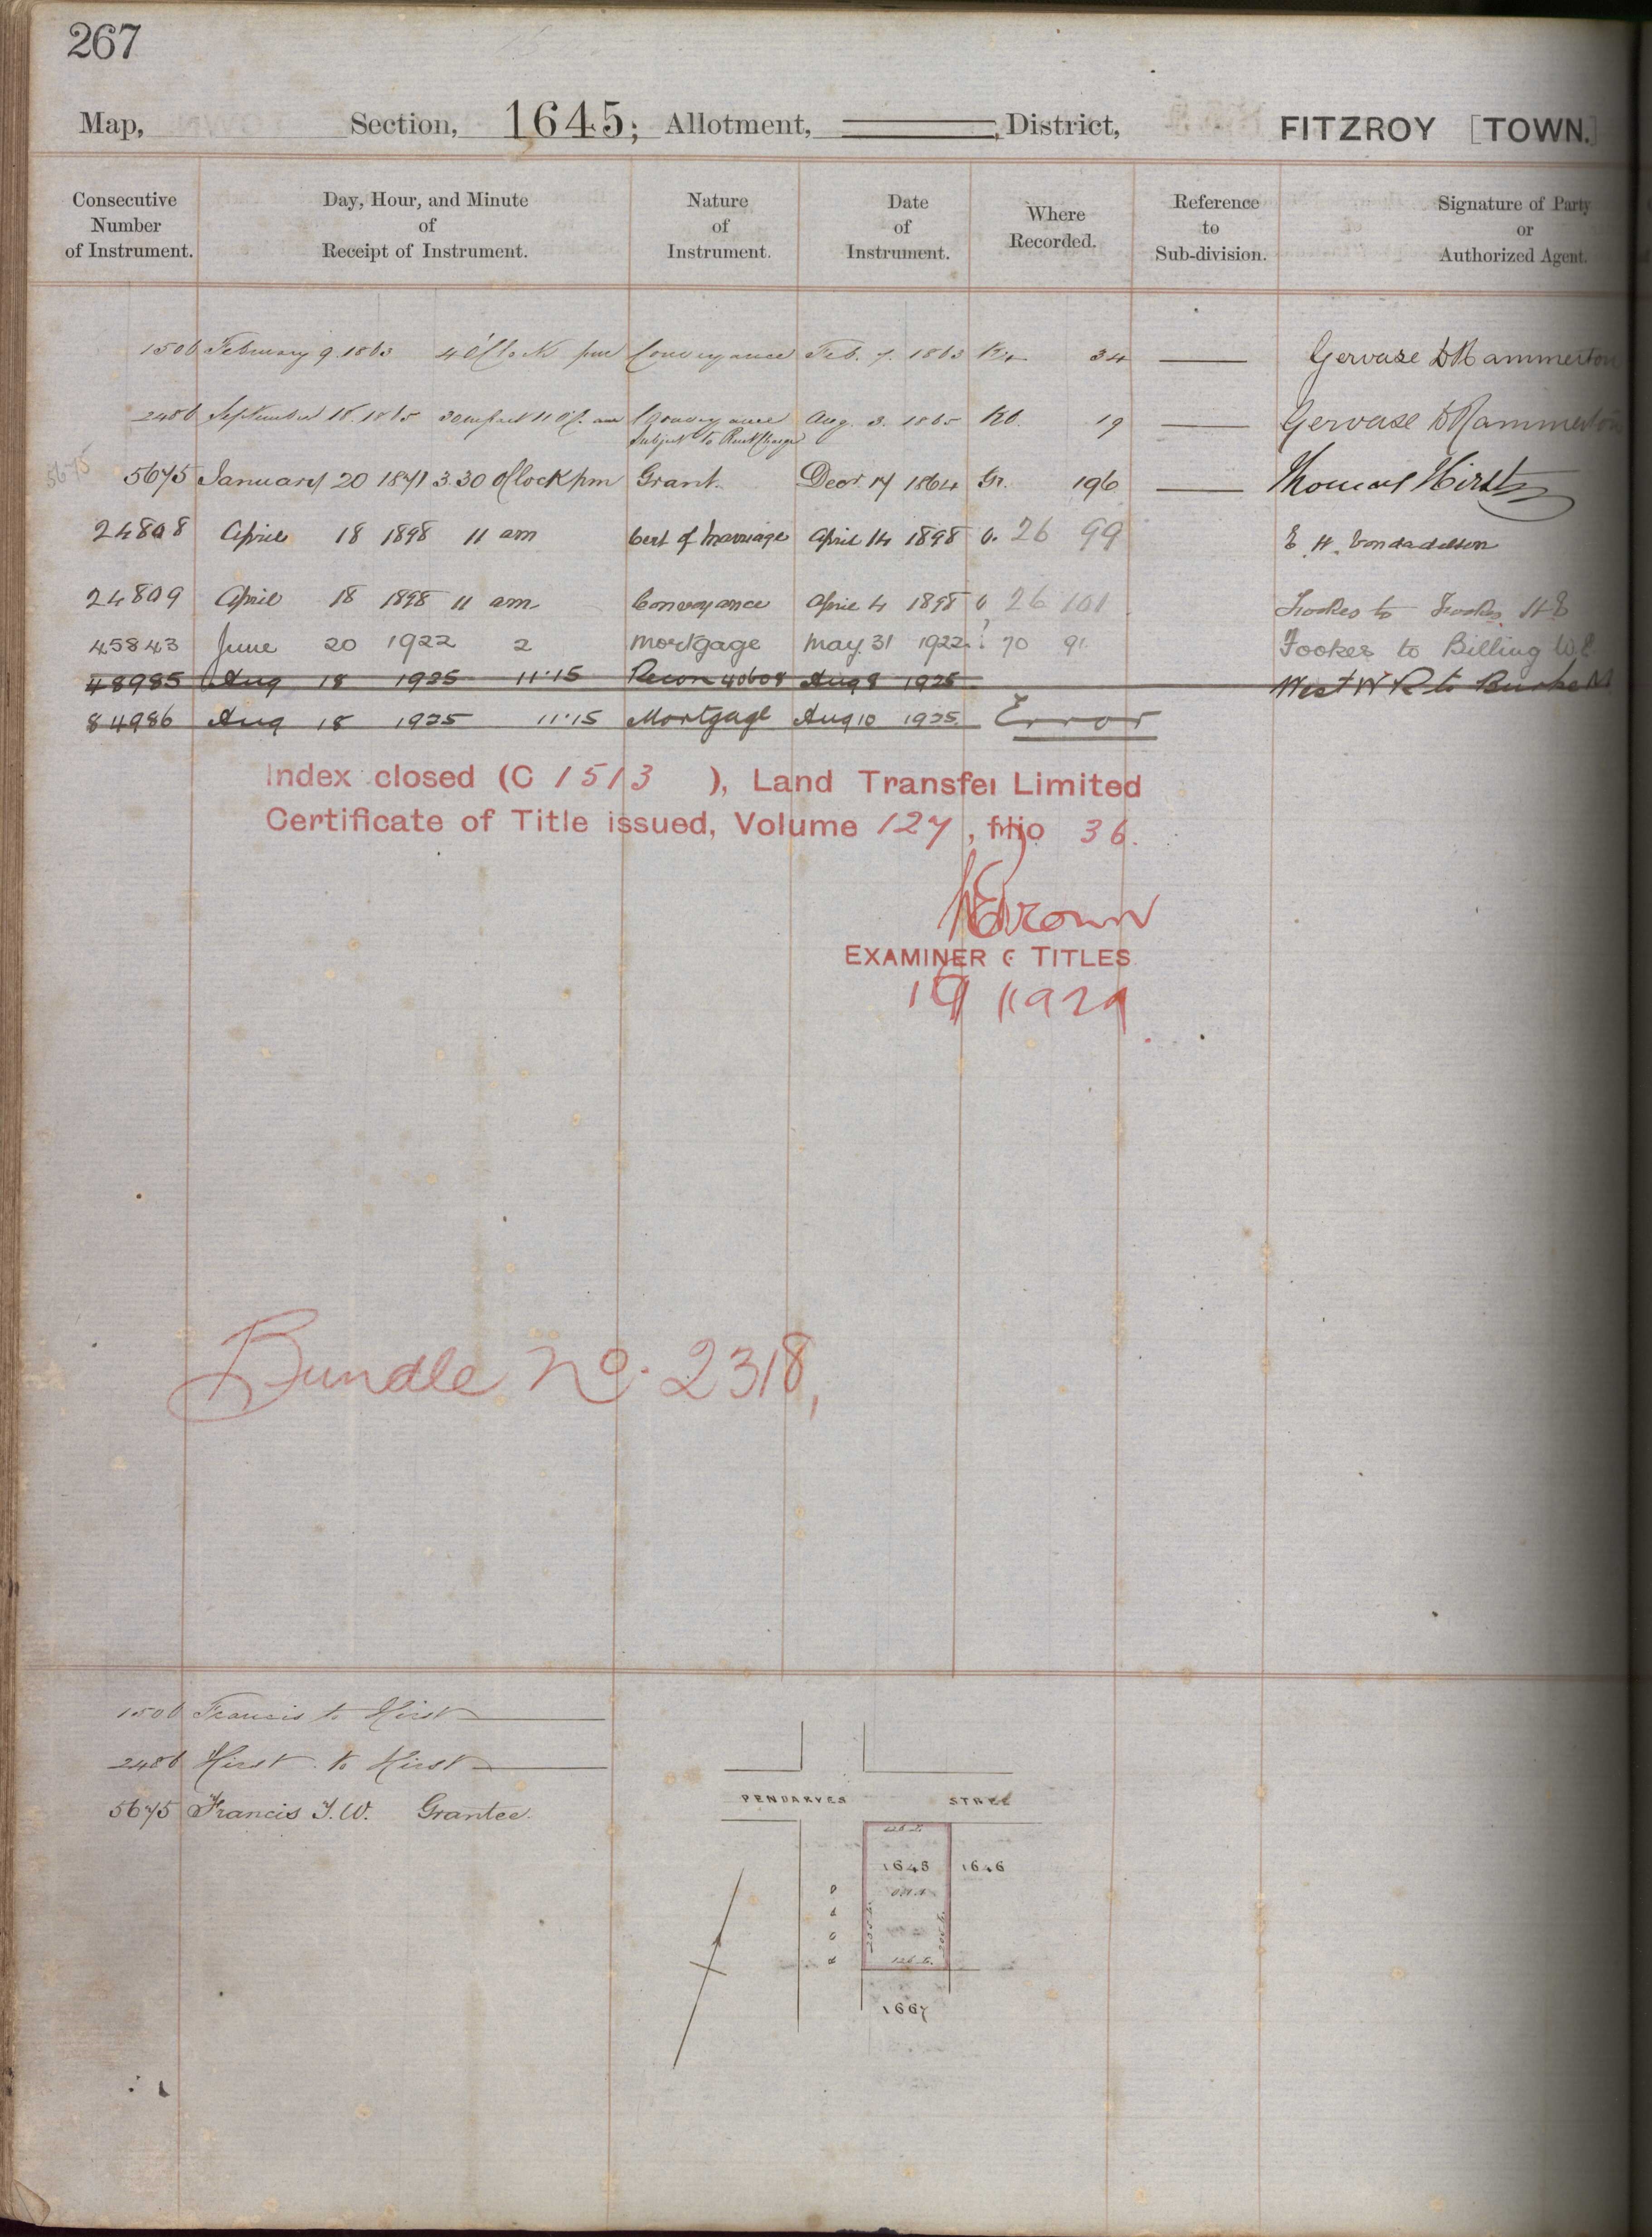 267
Map, Section, 1645; Allotment, District, FITZROY [TOWN.]
Consecutive Number of Instrument. Day, Hour, and Minute of Receipt of Instrument. Nature of Instrument. Date of Instrument. Where Recorded. Reference to Sub-division. Signature of Party or Authorized Agent.
1506 February 9. 1863 4 O'Clock pm Conveyance Feb. 7. 1863 34 Gervase D Hammerton
2486 September 18. 1865 30 m past 11 O'C. am Conveyance Aug. 3. 1865 19 Gervase D Hammerton
subject to Rent Charge
5675 5675 January 20 1871 3.30 O'Clock pm Grant. Decr 17 1864 Gr. 196 Thomas Hirst
24808 April 18 1898 11 am Cert of Marriage April 14 1898 26 99
24809 April 18 1898 11 am Conveyance April 4 1898 26 101 Fookes to Fookes H E
45843 June 20 1922 2 Mortgage May 31 1922 70 91 Fookes to Billing W E
48985 Aug 18 1925 11.15 Recon 40608 Aug 8 1925 West W R to Burke M
84986 Aug 18 1925 11.15 Mortgage Aug 10 1925 Error
Index closed (C 1513 ), Land Transfer Limited
Certificate of Title issued, Volume 127, folio 36.
Brown
EXAMINER OF TITLES
1929
Bundle No. 2318,
1506 Francis to Hirst
2486 Hirst to Hirst
5675 Francis T. W. Grantee.
PENDARVES STREE
126
1645 1646
126
1667